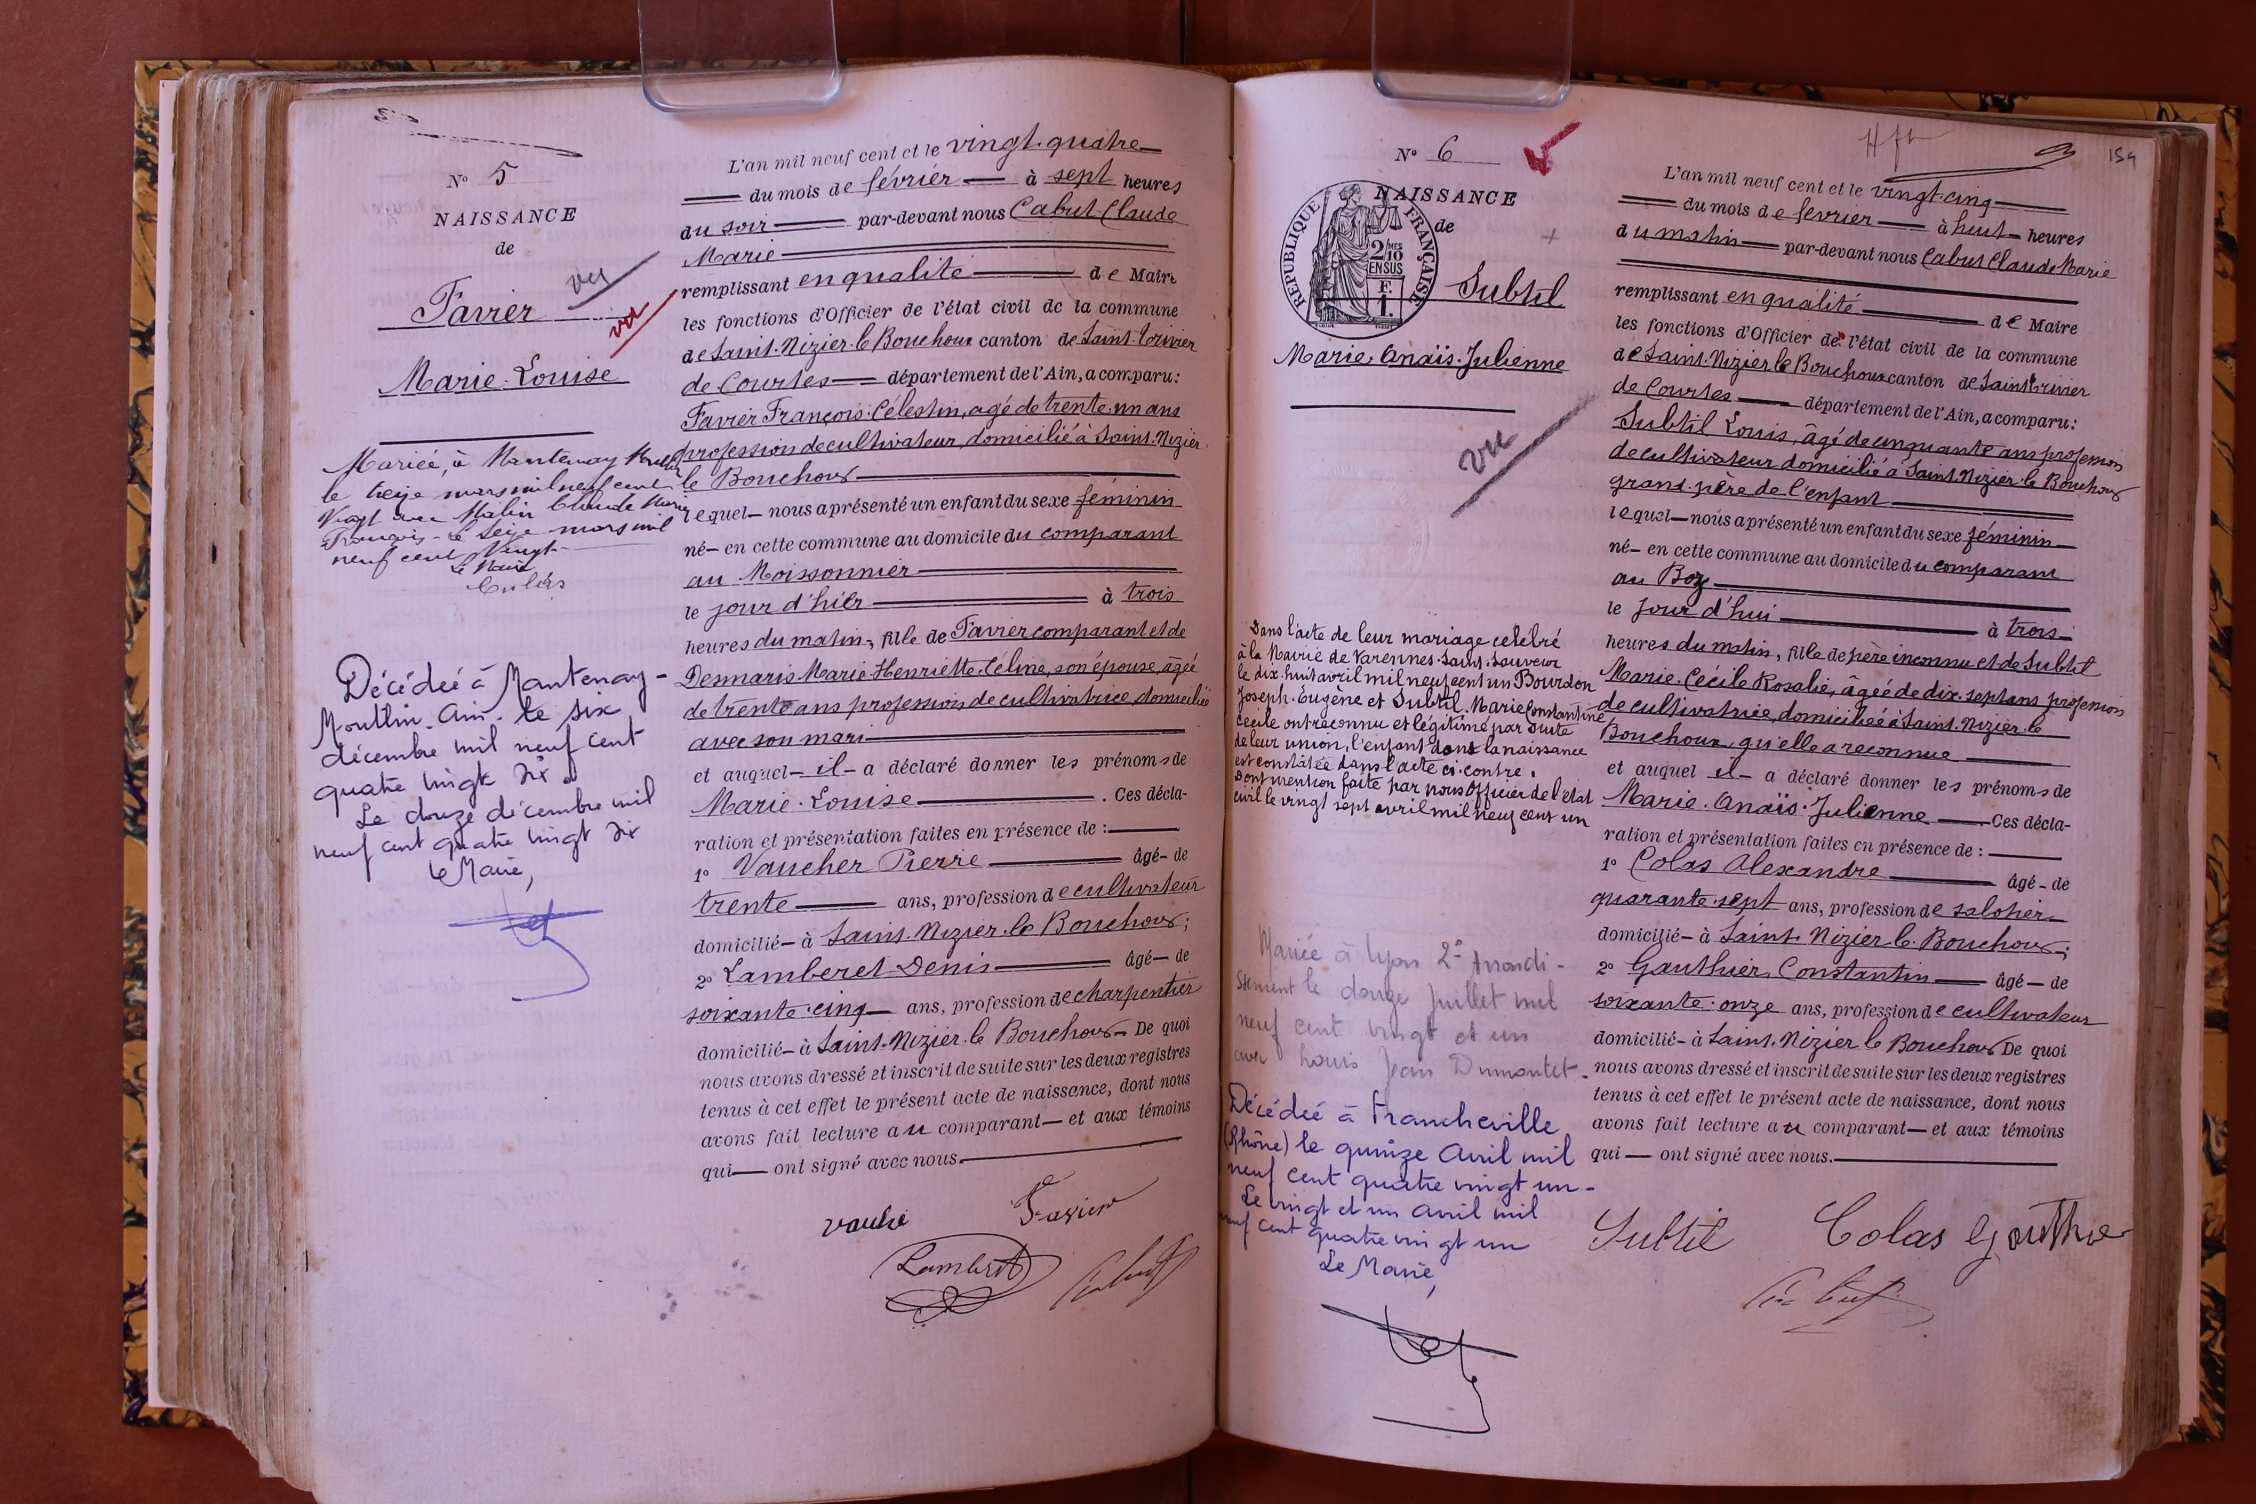 N° 5
NAISSANCE
de
Favier
vu
vu
Marie-Louise
Mariée, à Mantenay
le treize mars mil neuf cent
Vingt avec Malin Claude Marie
François - le seize mars mil
neuf cent Vingt
Le Maire
Décédée à Mantenay-
Montlin. Ain. le six
décembre mil neuf cent
quatre vingt dix.
Le douze décembre mil
neuf cent quatre vingt dix
Le Maire,
L'an mil neuf cent et le vingt-quatre
du mois de février à sept heures
du soir par-devant nous Cabut Claude
Marie
remplissant en qualité de Maire
les fonctions d'Officier de l'état civil de la commune
de Saint-Nizier-le Bouchoux canton de Saint-Trivier
de Courtes département de l'Ain, a comparu:
Favier François-Célestin, agé de trente-un ans
profession de cultivateur, domicilié à Saint-Nizier-
le Bouchoux
lequel nous a présenté un enfant du sexe féminin
né en cette commune au domicile du comparant
au Moissonnier
le jour d'hier à trois
heures du matin, fille de Favier comparant et de
Desmaris Marie-Henriette-Céline, son épouse, âgée
de trente ans profession de cultivatrice, domiciliée
avec son mari
et auquel il a déclaré donner les prénoms de
Marie-Louise. Ces décla-
ration et présentation faites en présence de :
1° Vaucher Pierre âgé de
trente ans, profession de cultivateur
domicilié à Saint-Nizier-le Bouchoux;
2° Lamberet Denis âgé de
soixante-cinq ans, profession de charpentier
domicilié à Saint-Nizier-le Bouchoux De quoi
nous avons dressé et inscrit de suite sur les deux registres
tenus à cet effet le présent acte de naissance, dont nous
avons fait lecture au comparant et aux témoins
qui ont signé avec nous.
Favier
Lamberet
Cabut
N° 6
NAISSANCE
de
REPUBLIQUE FRANÇAISE
2/10 MES
EN SUS
F.
1.
Subtil
Marie-Anaïs-Julienne
vu
Dans l'acte de leur mariage célébré
à la Mairie de Varennes-Saint-Sauveur
le dix-huit avril mil neuf cent un Bourdon
Joseph-Eugène et Subtil Marie Constantine
Cécile ont reconnu et légitimé par suite
de leur union, l'enfant dont la naissance
est constatée dans l'acte ci-contre.
Dont mention faite par nous Officier de l'état
civil le vingt sept avril mil neuf cent un
Mariée à Lyon 2e Arrondi-
ssement le douze juillet mil
neuf cent vingt et un
avec Louis Jean Dumontet.
Décédée à Francheville
(Rhône) le quinze avril mil
neuf cent quatre vingt un-
Le vingt et un avril mil
neuf cent quatre vingt un
Le Maire,
159
L'an mil neuf cent et le vingt-cinq
du mois de février à huit heures
du matin par-devant nous Cabut Claude Marie
remplissant en qualité de Maire
les fonctions d'Officier de l'état civil de la commune
de Saint-Nizier le Bouchoux canton de Saint-Trivier
de Courtes département de l'Ain, a comparu:
Subtil Louis, âgé de cinquante ans profession
de cultivateur domicilié à Saint-Nizier-le Bouchoux
grand-père de l'enfant
lequel nous a présenté un enfant du sexe féminin
né en cette commune au domicile du comparant
au Boz
le jour d'hui à trois
heures du matin, fille de père inconnu et de Subtil
Marie-Cécile Rosalie, âgée de dix-sept ans profession
de cultivatrice, domiciliée à Saint-Nizier-le
Bouchoux, qu'elle a reconnue
et auquel il a déclaré donner les prénoms de
Marie-Anaïs-Julienne Ces décla-
ration et présentation faites en présence de :
1° Colas Alexandre âgé de
quarante-sept ans, profession de sabotier
domicilié à Saint-Nizier-le-Bouchoux;
2° Gauthier Constantin âgé de
soixante-onze ans, profession de cultivateur
domicilié à Saint-Nizier le Bouchoux De quoi
nous avons dressé et inscrit de suite sur les deux registres
tenus à cet effet le présent acte de naissance, dont nous
avons fait lecture au comparant et aux témoins
qui ont signé avec nous.
Subtil Colas Gauthier
Cabut